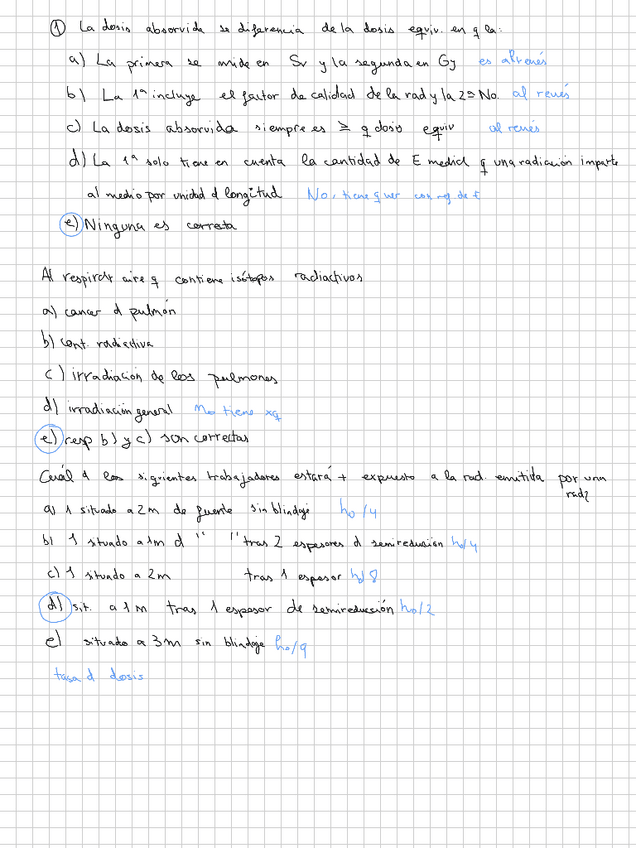 ① La dosis absorvida se diferencia de la dosis equiv. en q la:
a) La primera se mide en Sv y la segunda en Gy es al revés
b) La 1ª incluye el factor de calidad de la rad y la 2ª No. al revés
c) La dosis absorvida siempre es ≥ q dosis equiv al revés
d) La 1ª solo tiene en cuenta la cantidad de E media q una radiación imparte
al medio por unidad d longitud No, tiene q ver con
e) Ninguna es correcta
Al respirar aire q contiene isótopos radiactivos
a) cancer d pulmón
b) cont. radiactiva
c) irradiacion de los pulmones
d) irradiación general No tiene xq
e) resp b) y c) son correctas
Cuál d los siguientes trabajadores estará + expuesto a la rad. emitida por una
rad?
a) 1 situado a 2m de fuente sin blindaje ho/4
b) 1 situado a 1m d " " tras 2 espesores d semireducsión ho/4
c) 1 situado a 2m tras 1 espesor ho/8
d) sit. a 1 m tras 1 espesor de semireducción ho/2
e) situado a 3m sin blindaje ho/9
tasa d dosis